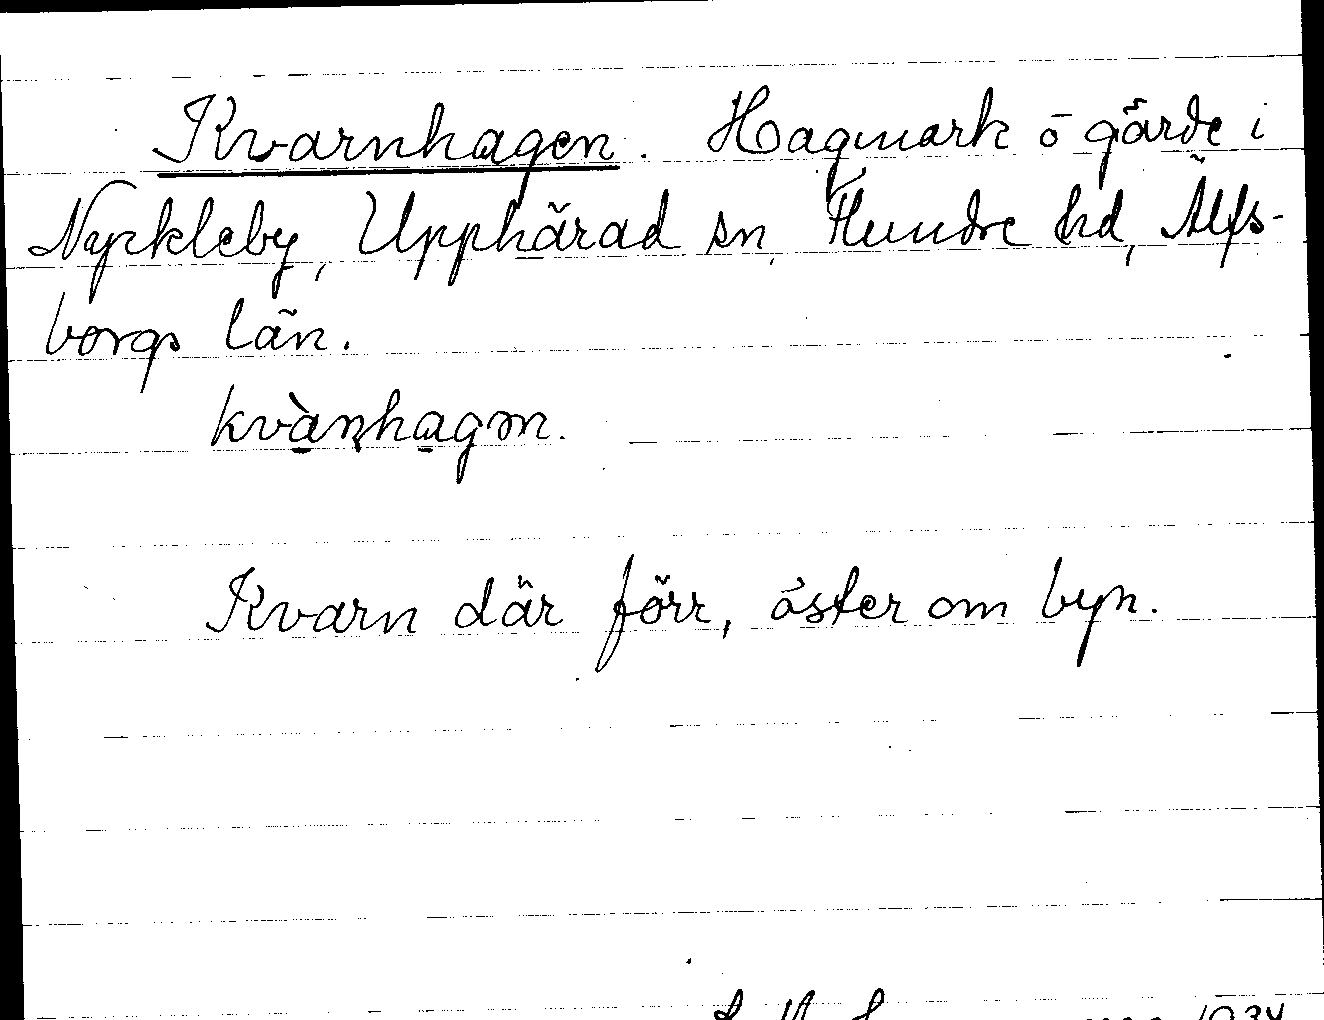 Kvarnhagen. Hagmark o gärde i
Nyckleby, Upphärad sn, Flundre hd, Älfs-
borgs län.
kvàṇhagən.
Kvarn där förr, öster om byn.
1934